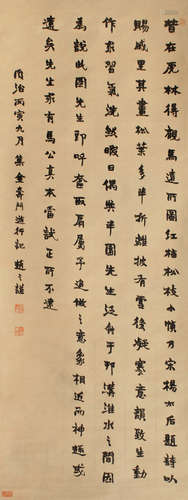 昔在林得觀馬遠所圖紅梅松枝小幀乃宋楊太后題詩以
賜戚里其畫松葉多半折離披有雪後凝寒意韻致生動
作家習氣洗然暇日偶與半園先生泛舟于邗溝淮水之間因
為說此圖先生即呼奩取扇屬予追倣之意象相近而神趣
遺矣先生家有馬公真本當試正所不逮
同治丙寅九月集金壽門遊行記 趙之謙